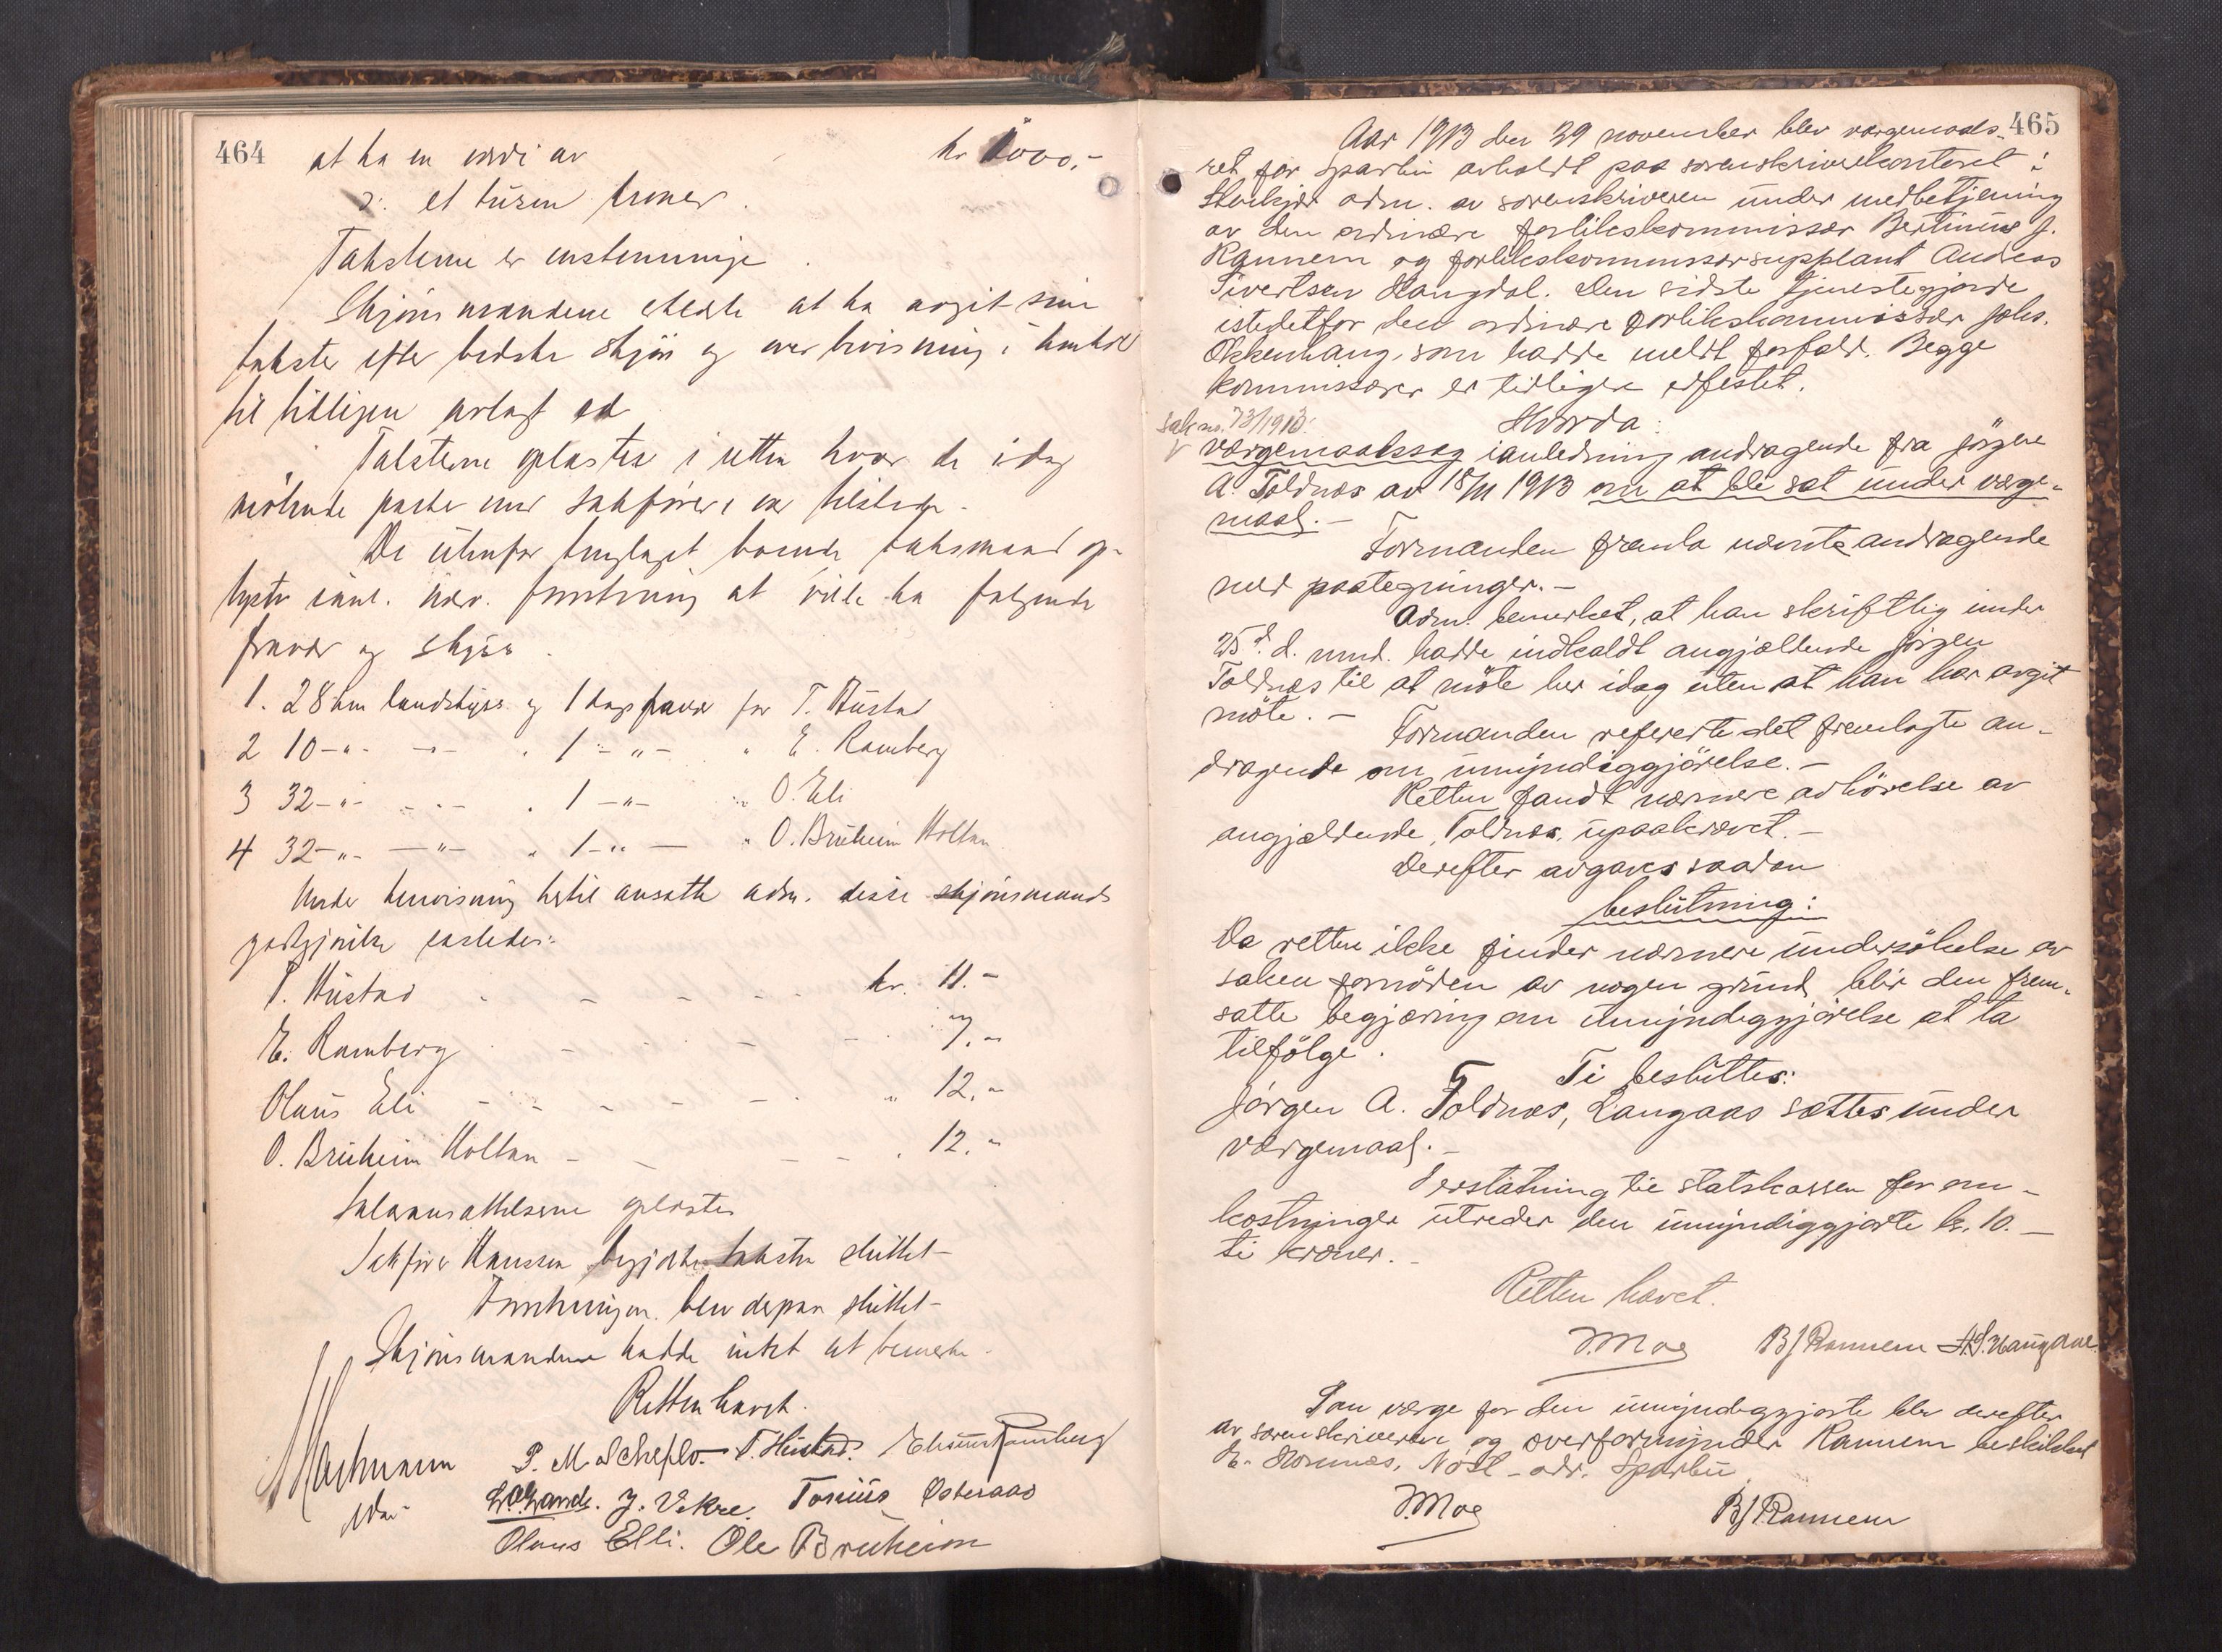 464
at ha en værdi av kr 1000,-
ɔ: et tusen kroner.
Taksterne er enstemmige.
Skjønsmændene erklærte at ha avgit sine
takster efter bedste skjøn og overbevisning i henhold
til tidligere avlagt ed
Taksterne oplæstes i retten hvor de idag
møtende parter med sakfører var tilstede.
De utenfor tinglaget boende taksmænd op-
lyste i anl. nærv. forretning at ville ha følgende
fravær og skyss.
1. 28 km landskyss og 1 dags fravær for T. Hustad
2 10 -"- -"- " 1 -"- " E. Ramberg
3 32 -"- -"- " 1 -"- " O. Eli
4 32 -"- -"- " 1 -"- " O. Bruheim Holtan
Under henvisning hertil ansatte adm. disse skjønsmænds
godtgjørelse saaledes:
T. Hustad - - - - kr. 11.-
E. Ramberg - - - - 7.-
Olaus Eli - - - - " 12.-
O. Bruheim Holtan - - - - " 12.-
Salæransættelserne oplæstes
Sakfører Hanssen begjærte taksten sluttet-
Forretningen blev derpaa sluttet-
Skjønsmændene hadde intet at bemerke.
Retten hævet.
P. M. Scheflo. T. Hustad. Edvard Ramberg
J. Vekre. Tonius Østeraas
Olaus Elli. Ole Bruheim
465
Aar 1913 den 29 november blev værgemaals-
ret for Sparbu avholdt paa sorenskriverkontoret i
Stenkjær adm. av sorenskriveren under medbetjening
av den ordinære forlikskommissær Bertinus J.
Rannem og forlikskommissærsupplant Andreas
Sivertsen Haugdal. Den sidste tjenestegjorde
istedetfor den ordinære forlikskommissær Johs.
Okkenhaug, som hadde meldt forfald. Begge
kommissærer er tidligere edfestet.
Hvorda:
Sak no. 73/1913:
værgemaalssag i anledning andragende fra Jørgen
A. Foldnæs av 18/11 1913 om at bli sat under værge-
maal.-
Formanden fremla nævnte andragende
med paategninger.-
Adm. bemerket, at han skriftlig under
25d d. mnd. hadde indkaldt angjældende Jørgen
Foldnæs til at møte her idag uten at han har avgit
møte.-
Formanden refererte det fremlagte an-
dragende om umyndiggjørelse.-
Retten fandt nærmere avhørelse av
angjældende, Foldnæs, upaakrævet.-
Derefter avgaves saadan
beslutning:
Da retten ikke finder nærmere undersøkelse av
saken fornøden av nogen grund, blir den frem-
satte begjæring om umyndiggjørelse at ta
tilfølge.
Ti besluttes:
Jørgen A. Foldnæs, Langaas sættes under
værgemaal.-
I erstatning til statskassen for om-
kostninger utreder den umyndiggjorte kr. 10.-
ti kroner.-
Retten hævet.
J. Moe B J Rannem A. S. Haugdal.
Som værge for den umyndiggjorte blev derefter
av sorenskriveren og overformynder Rannem beskikket
Nøst - adr. Sparbu
J. Moe B J Rannem